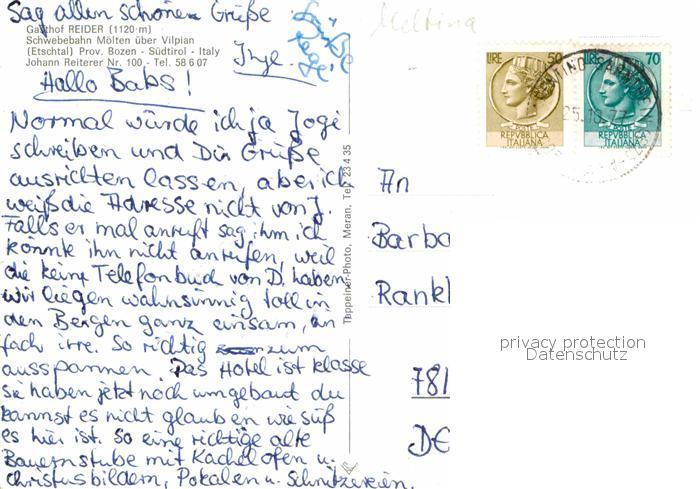 Sag allen schönen Grüße
Gasthof REIDER (1120 m)
Schwebebahn Mölten über Vilpian
(Etschtal) Prov. Bozen - Südtirol - Italy
Johann Reiterer Nr. 100 - Tel. 58 6 07
Inge.
Hallo Babs!
Normal würde ich ja Jogi
schreiben und Dir Grüße
ausrichten lassen, aber ich
weiß die Adresse nicht von J.
Falls er mal anruft sag ihm ich
könnte ihn nicht anrufen, weil
die keine Telefonbuch von D. haben
wir liegen wahnsinnig toll in
den Bergen ganz einsam, ein
fach irre. So richtig zum
ausspannen. Das Hotel ist klasse
sie haben jetzt noch umgebaut du
kannst es nicht glauben wie süß
es hier ist. So eine richtige alte
Bauernstube mit Kachelofen u.
Christusbildern, Pokalen u. Schnitzereien.
Tappeiner-Photo, Meran, Tel. 23 4 35
LIRE 50
REPVBBLICA
ITALIANA
LIRE 70
REPVBBLICA
ITALIANA
25.10.77
An
Barba
Rankl
privacy protection
Datenschutz
781
DE